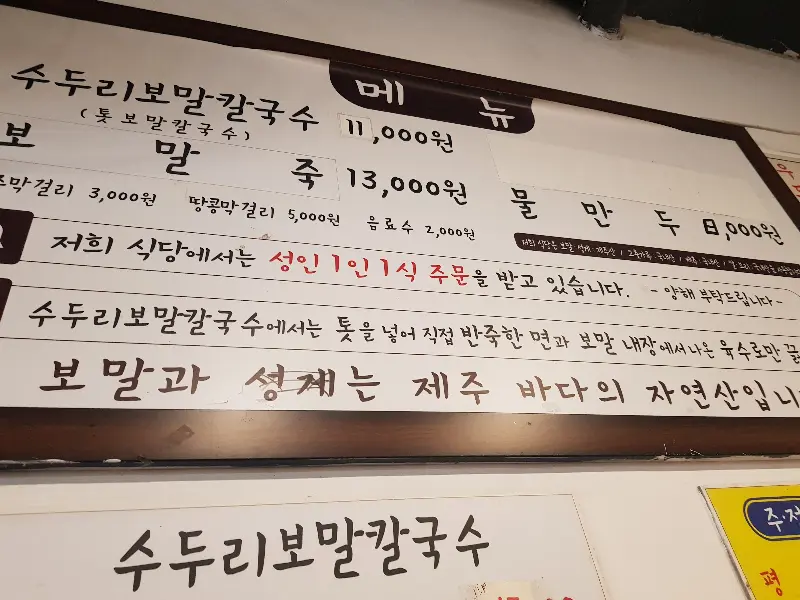 메뉴
수두리보말칼국수 11,000원
(톳보말칼국수)
보말죽 13,000원
물만두 8,000원
막걸리 3,000원 땅콩막걸리 5,000원 음료수 2,000원
저희 식당에서는 성인 1인 1식 주문을 받고 있습니다. - 양해 부탁드립니다 -
수두리보말칼국수에서는 톳을 넣어 직접 반죽한 면과 보말 내장에서 나온 육수로만
보말과 성게는 제주 바다의 자연산입니
수두리보말칼국수